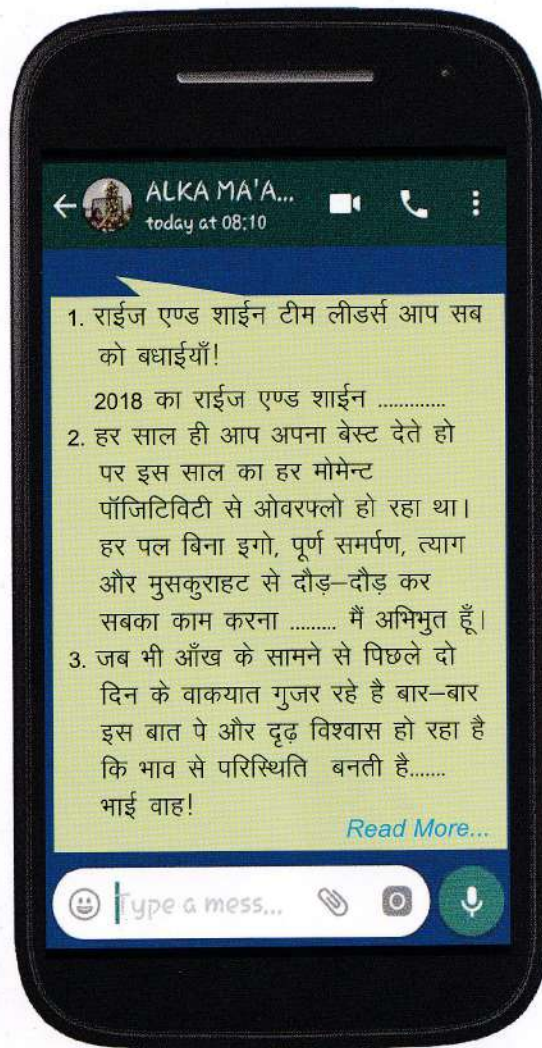 ALKA MA'A...
today at 08:10
1. राईज एण्ड शाईन टीम लीडर्स आप सब
को बधाईयाँ!
2018 का राईज एण्ड शाईन .............
2. हर साल ही आप अपना बेस्ट देते हो
पर इस साल का हर मोमेन्ट
पॉजिटिविटी से ओवरफ्लो हो रहा था।
हर पल बिना इगो, पूर्ण समर्पण, त्याग
और मुसकुराहट से दौड़–दौड़ कर
सबका काम करना ......... मैं अभिभुत हूँ।
3. जब भी आँख के सामने से पिछले दो
दिन के वाकयात गुजर रहे है बार–बार
इस बात पे और दृढ़ विश्वास हो रहा है
कि भाव से परिस्थिति बनती है.......
भाई वाह!
Read More...
Type a mess...